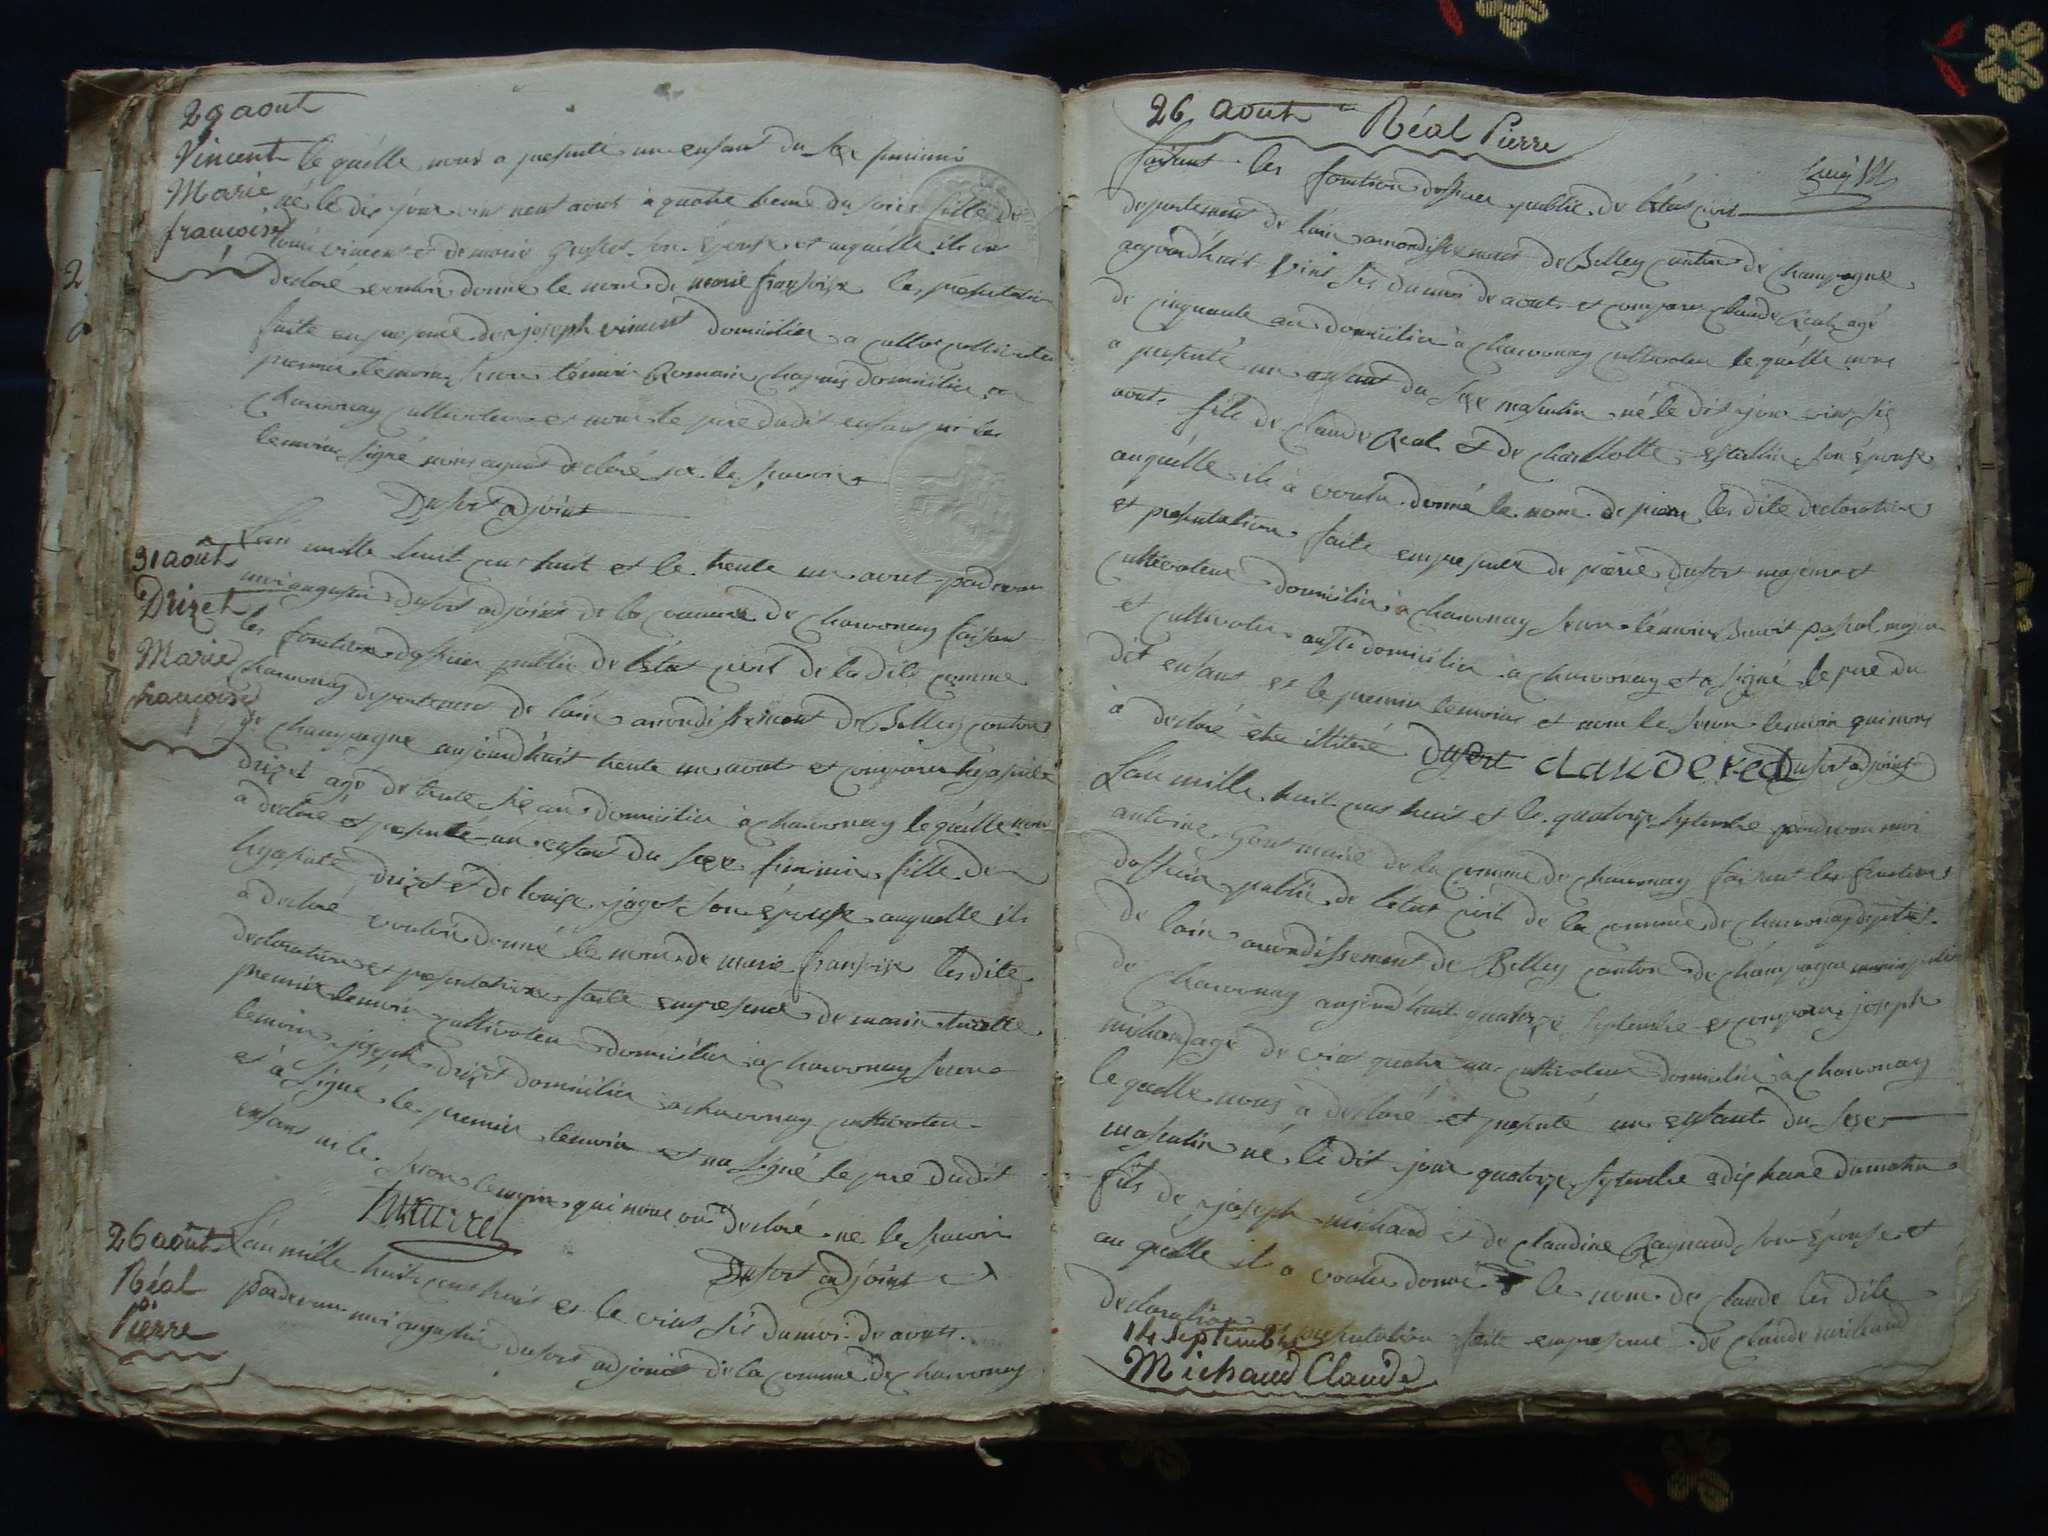 29 aout
Vincent
Marie
françoise
le quelle nous a presenté un enfant du sexe feminin
né le dis jour vint neuf aout a quatre heure du soire fille de
vincent et de marie son épouse et auquelle ils on
declaré vouloir donné le nom de marie françoise les presentation
faite en presence de joseph vincent domicilier a cultivateu
premier temoin, secon témoin Romain chapuis domicilier a
chavornay cultivateur et nom le pere dudit enfant ni les
temoins signé nous ayant declaré ne le savoir
Dufort adjoint
31 août
Drizet
Marie
françoise
L'an mille huit cent huit et le trente un aout pardevan
moi augustin Dufort adjoint de la commune de chavornay faisant
les fonction dofficier public de létat civil de la dite comune
chavornay departement de l'ain arrondissement de Belley canton
de champagne aujourdhuit trente un aout et comparu hyasinte
drizet agé de trente sie an domicilier à chavornay le quelle nous
a declaré et presenté un enfant du sexe feminin fille de
hyasinte drizet et de louise jagot son épouse auquelle ils
a declaré vouloir donné le nom de marie françoise les dite
declaration et presentation faite en presence de marin
premier temoin cultivateu domicilier à chavornay secon
temoin joseph drizet domicilier a chavornay cultivateu
et à signé le premier temoin et na signé le pere dudit
enfant ni le secon temoin qui nous on declaré ne le savoir
Dufort adjoint
26 août
Réal
Pierre
L'an mille huit cent huit et le vint sis du mois de aout
pardevan moi augustin dufort adjoint de la commune de chavornay
26 aout Réal Pierre
faisant les fonction dofficier public de létat civil
departement de l'ain arrondissement de Belley canton de champagne
aujourdhuit vint sis du mois de aout et comparu claude Réal agé
de cinquante an domicilier à chavornay cultivateu le quelle nous
a presenté un enfant du sexe masculin né le dit jour vint sis
aout fils de claude Réal et de charllotte son épouse
auquelle ils à voulu donné le nom de pierre les dite declaration
et presentation faite en presence de pierre Dufort majeur et
cultivateur domicilier à chavornay secon témoin Benoit pascal majeur
et cultivateu aussi domicilier à chavornay et a signé le pere du
dit enfant et le premier temoins et nom le secon temoin qui nous
à declaré être illiteré Dufort claude real Dufort adjoint
L'an mille huit cent huit et le quatorze septembre pardevan moi
antoine Gout maire de la comune de chavornay faisant les fonction
dofficier public de létat civil de la comune de chavornay departet.
de lain arrondissement de Belley canton de champagne
de chavornay aujourdhuit quatorze septembre et comparu joseph
michaud agé de vint quatre an cultivateur domicilier à chavornay
le quelle nous à declaré et presenté un enfant du sexe
masculin né le dit jour quatorze septembre a dix heure du matin
fils de joseph michaud et de claudine Reynaud son épouse et
au quelle il a voulu donné le nom de claude les dite
declaration presentation faite en presence de claude michaud
14 septembre
Michaud Claude